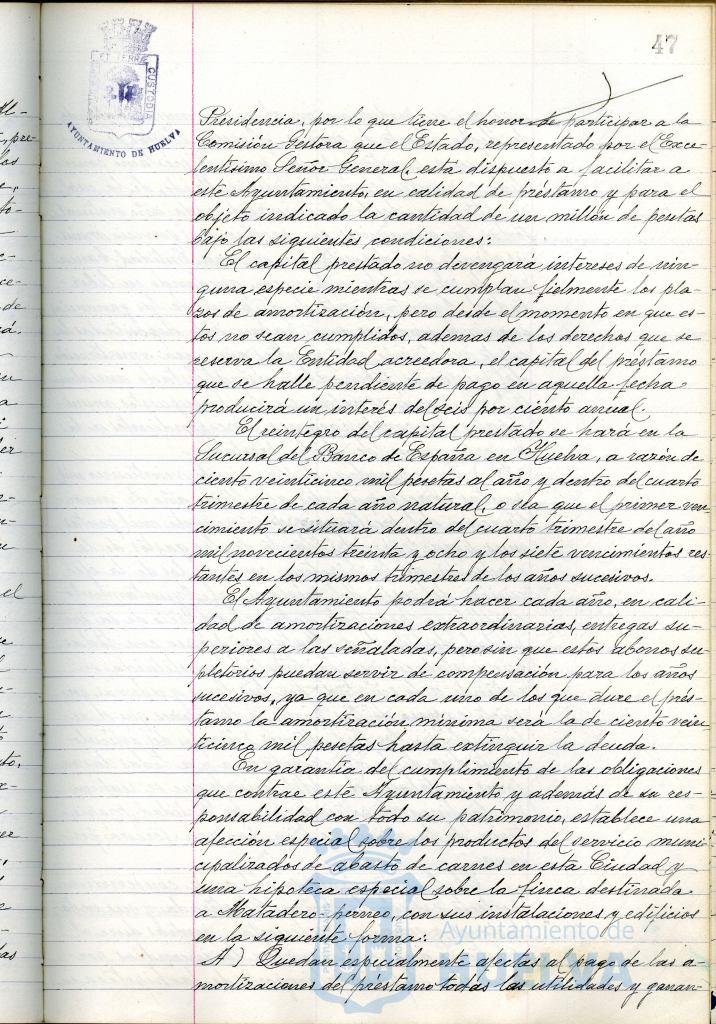 47
AYUNTAMIENTO DE HUELVA
CUSTODIA
Presidencia, por lo que tiene el honor de participar a la
Comisión Gestora que el Estado, representado por el Exce-
lentísimo Señor General, está dispuesto a facilitar a
este Ayuntamiento, en calidad de préstamo y para el
objeto indicado la cantidad de un millón de pesetas
bajo las siguientes condiciones:
El capital prestado no devengará intereses de nin-
guna especie mientras se cumplan fielmente los pla-
zos de amortización, pero desde el momento en que es-
tos no sean cumplidos, además de los derechos que se
reserva la Entidad acreedora, el capital del préstamo
que se halle pendiente de pago en aquella fecha
producirá un interés del seis por ciento anual.
El reintegro del capital prestado se hará en la
Sucursal del Banco de España en Huelva, a razón de
ciento veinticinco mil pesetas al año y dentro del cuarto
trimestre de cada año natural, o sea que el primer ven-
cimiento se situará dentro del cuarto trimestre del año
mil novecientos treinta y ocho y los siete vencimientos res-
tantes en los mismos trimestres de los años sucesivos.
El Ayuntamiento podrá hacer cada año, en cali-
dad de amortizaciones extraordinarias, entregas su-
periores a las señaladas, pero sin que estos abonos su-
pletorios puedan servir de compensación para los años
sucesivos, ya que en cada uno de los que dure el prés-
tamo la amortización mínima será la de ciento vein-
ticinco mil pesetas hasta extinguir la deuda.
En garantía del cumplimiento de las obligaciones
que contrae este Ayuntamiento y además de su res-
ponsabilidad con todo su patrimonio, establece una
afección especial sobre los productos del servicio muni-
cipalizados de abasto de carnes en esta Ciudad y
una hipoteca especial sobre la finca destinada
a Matadero-perneo, con sus instalaciones y edificios
en la siguiente forma:
A) Quedan especialmente afectas al pago de las a-
mortizaciones del préstamo todas las utilidades y ganan-
Ayuntamiento de
HUELVA